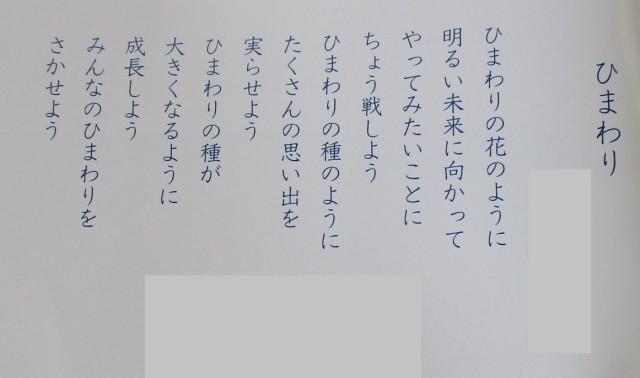 ひまわり
ひまわりの花のように
明るい未来に向かって
やってみたいことに
ちょう戦しよう
ひまわりの種のように
たくさんの思い出を
実らせよう
ひまわりの種が
大きくなるように
成長しよう
みんなのひまわりを
さかせよう